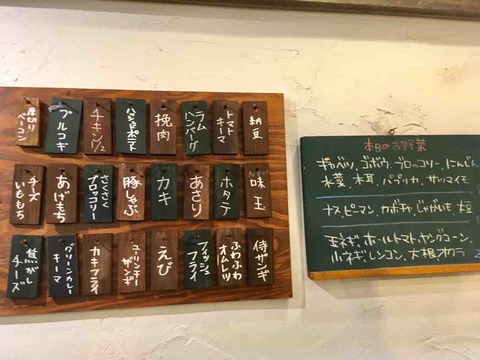 厚切りベーコン
プルコギ
チキン1/2
ハッシュドポテト
挽肉
ラムハンバーグ
トマトキーマ
納豆
チーズいももち
あげもち
さくさくブロッコリー
豚しゃぶ
カキ
あさり
ホタテ
味玉
焦がしチーズ
グリーンカレーキーマ
カキフライ
ユーリンチーザンギ
えび
フィッシュフライ
ふわふわオムレツ
侍ザンギ
本日のお野菜
キャベツ、ゴボウ、ブロッコリー、にんじん
水菜、木耳、パプリカ、サツマイモ
ナス、ピーマン、カボチャ、じゃがいも、大豆
玉ネギ、ホールトマト、ヤングコーン、
小ネギ、レンコン、大根、オクラ